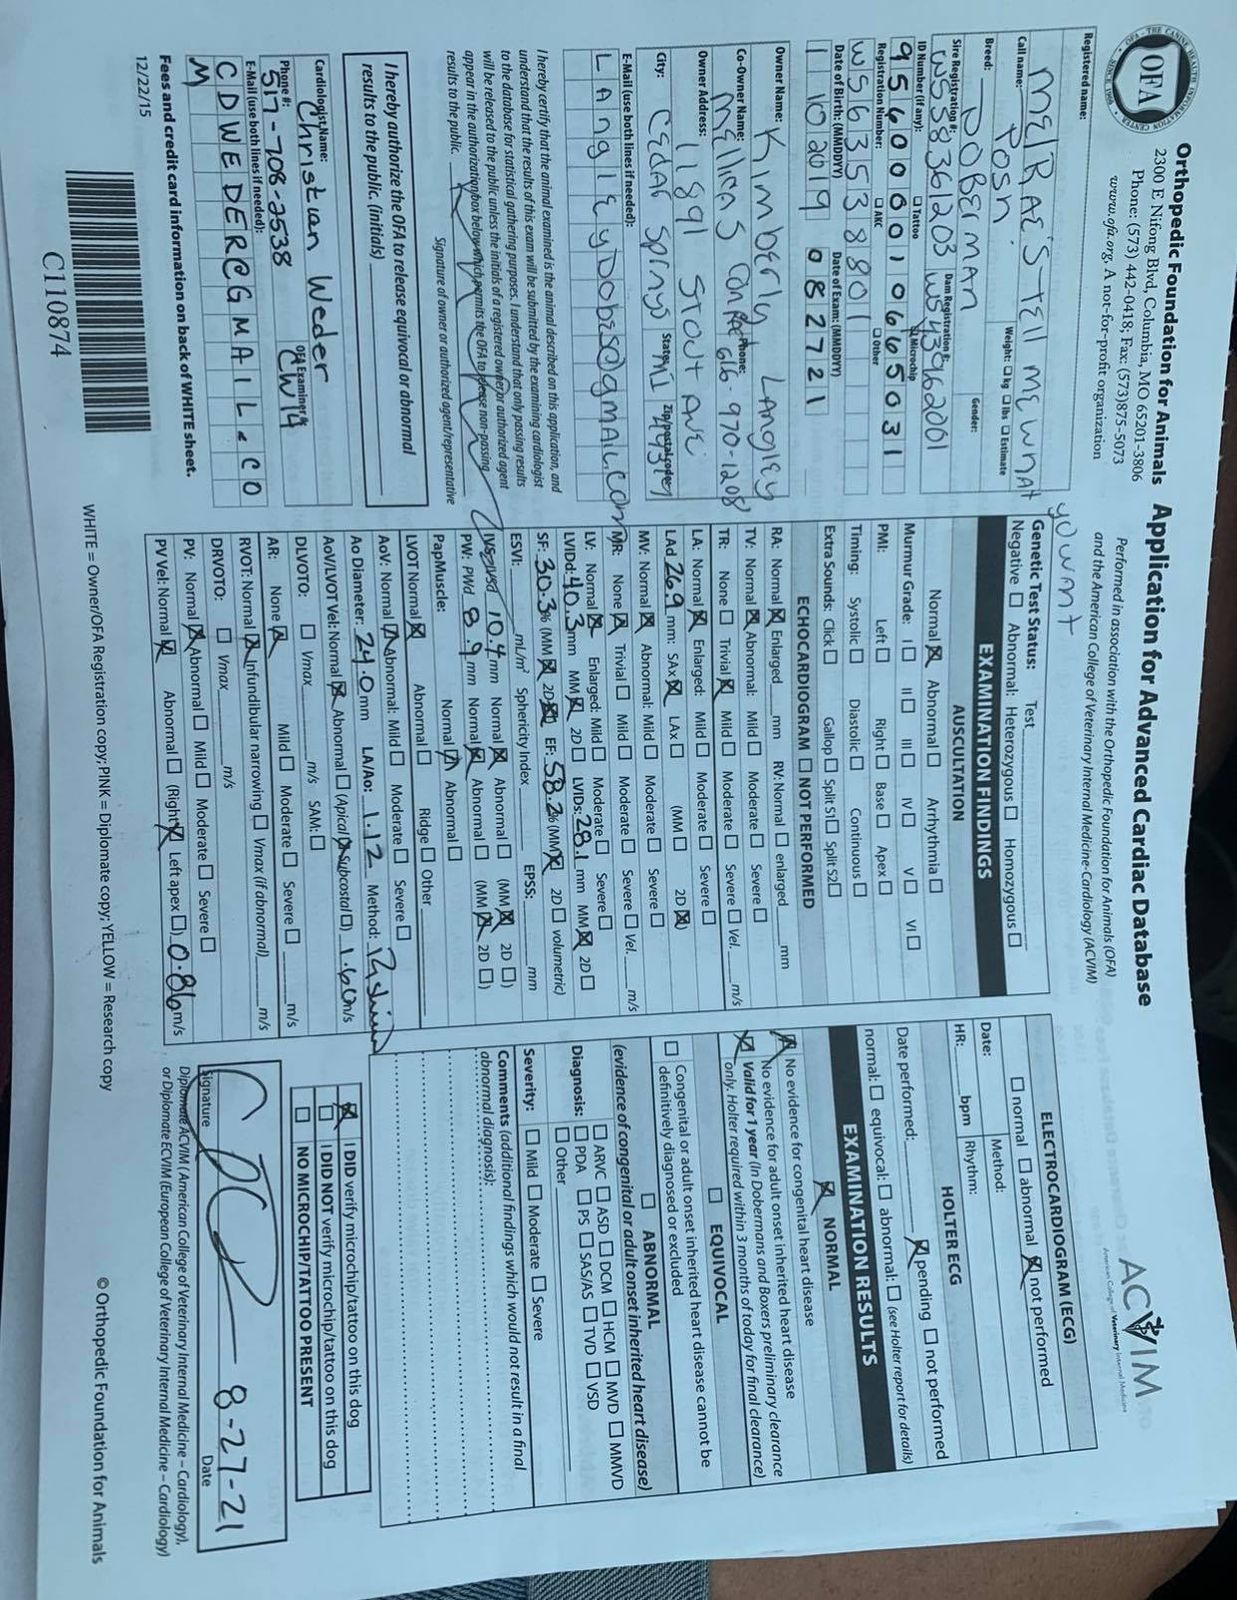 OFA
OFA - THE CANINE HEALTH INFORMATION CENTER
SINCE 1966
Orthopedic Foundation for Animals
2300 E Nifong Blvd, Columbia, MO 65201-3806
Phone: (573) 442-0418; Fax: (573)875-5073
www.ofa.org, A not-for-profit organization
Application for Advanced Cardiac Database
Performed in association with the Orthopedic Foundation for Animals (OFA)
and the American College of Veterinary Internal Medicine-Cardiology (ACVIM)
ACVIM
American College of Veterinary Internal Medicine
Registered name:
MelRae's Tell me wnat
you wnt
Call name: Posh
Weight: ☐ kg ☐ lbs ☐ Estimate
Breed: DOBERMAN
Gender:
Sire Registration #: WS58361203
Dam Registration #: WS543962001
ID Number (if any): ☐ Tattoo ☒ Microchip
956000010665031
Registration Number: ☐ AKC ☐ Other
WS63538801
Date of Birth: (MMDDYY)
1 10 2019
Date of Exam: (MMDDYY)
082721
Owner Name: Kimberly Langley
Co-Owner Name: Mellisa S
Phone: 616-970-1208
Owner Address: 11891 Stout Ave
City: Cedar Springs State: MI Zip/postal code: 49319
E-Mail (use both lines if needed):
Langleydobes@gmail.com
I hereby certify that the animal examined is the animal described on this application, and
understand that the results of this exam will be submitted by the examining cardiologist
to the database for statistical gathering purposes. I understand that only passing results
will be released to the public unless the initials of a registered owner or authorized agent
appear in the authorization box below which permits the OFA to release non-passing
results to the public.
Signature of owner or authorized agent/representative
I hereby authorize the OFA to release equivocal or abnormal
results to the public. (initials)
Cardiologist Name: Christian Weder
Phone #: 517-708-2538
OFA Examiner #: CW14
E-Mail (use both lines if needed):
CDWEDERCGMAIL.CO
M
Fees and credit card information on back of WHITE sheet.
12/22/15
C110874
Genetic Test Status: Test
Negative ☐ Abnormal: Heterozygous ☐ Homozygous ☐
EXAMINATION FINDINGS
AUSCULTATION
Normal ☒ Abnormal ☐ Arrhythmia ☐
Murmur Grade: I ☐ II ☐ III ☐ IV ☐ V ☐ VI ☐
PMI: Left ☐ Right ☐ Base ☐ Apex ☐
Timing: Systolic ☐ Diastolic ☐ Continuous ☐
Extra Sounds: Click ☐ Gallop ☐ Split S1 ☐ Split S2 ☐
ECHOCARDIOGRAM ☐ NOT PERFORMED
RA: Normal ☒ Enlarged mm RV: Normal ☐ enlarged mm
TV: Normal ☒ Abnormal: Mild ☐ Moderate ☐ Severe ☐
TR: None ☐ Trivial ☒ Mild ☐ Moderate ☐ Severe ☐ Vel. m/s
LA: Normal ☒ Enlarged: Mild ☐ Moderate ☐ Severe ☐
LAd 26.9 mm: SAx ☒ LAx ☐ (MM ☐ 2D ☒)
MV: Normal ☒ Abnormal: Mild ☐ Moderate ☐ Severe ☐
MR: None ☒ Trivial ☐ Mild ☐ Moderate ☐ Severe ☐ Vel. m/s
LV: Normal ☒ Enlarged: Mild ☐ Moderate ☐ Severe ☐
LVIDd: 40.3 mm MM ☒ 2D ☐ LVIDs: 28.1 mm MM ☒ 2D ☐
SF: 30.3% (MM ☒ 2D ☒) EF: 58.2% (MM ☒ 2D ☐ volumetric)
ESVI: mL/m² Sphericity Index EPSS: mm
IVS: IVSd 10.4 mm Normal ☒ Abnormal ☐ (MM ☒ 2D ☐)
PW: PWd 8.9 mm Normal ☒ Abnormal ☐ (MM ☒ 2D ☐)
PapMuscle: Normal ☒ Abnormal ☐
LVOT Normal ☒ Abnormal ☐ Ridge ☐ Other
AoV: Normal ☒ Abnormal: Mild ☐ Moderate ☐ Severe ☐
Ao Diameter: 24.0 mm LA/Ao: 1.12 Method:
AoV/LVOT Vel: Normal ☒ Abnormal ☐ (Apical ☒ subcostal ☐) 1.60 m/s
DLVOTO: ☐ Vmax m/s SAM: ☐
AR: None ☒ Mild ☐ Moderate ☐ Severe ☐ m/s
RVOT: Normal ☒ Infundibular narrowing ☐ Vmax (if abnormal) m/s
DRVOTO: ☐ Vmax m/s
PV: Normal ☒ Abnormal ☐ Mild ☐ Moderate ☐ Severe ☐
PV Vel: Normal ☒ Abnormal ☐ (Right ☒ Left apex ☐) 0.86 m/s
ELECTROCARDIOGRAM (ECG)
☐ normal ☐ abnormal ☒ not performed
Date: Method:
HR: bpm Rhythm:
HOLTER ECG
Date performed: ☒ pending ☐ not performed
normal: ☐ equivocal: ☐ abnormal: ☐ (see Holter report for details)
EXAMINATION RESULTS
☒ NORMAL
☒ No evidence for congenital heart disease
☒ No evidence for adult onset inherited heart disease
Valid for 1 year (In Dobermans and Boxers preliminary clearance
only. Holter required within 3 months of today for final clearance)
☐ EQUIVOCAL
☐ Congenital or adult onset inherited heart disease cannot be
definitively diagnosed or excluded
☐ ABNORMAL
(evidence of congenital or adult onset inherited heart disease)
Diagnosis: ☐ ARVC ☐ ASD ☐ DCM ☐ HCM ☐ MVD ☐ MMVD
☐ PDA ☐ PS ☐ SAS/AS ☐ TVD ☐ VSD
☐ Other
Severity: ☐ Mild ☐ Moderate ☐ Severe
Comments (additional findings which would not result in a final
abnormal diagnosis):
☒ I DID verify microchip/tattoo on this dog
☐ I DID NOT verify microchip/tattoo on this dog
☐ NO MICROCHIP/TATTOO PRESENT
8-27-21
Signature Date
Diplomate ACVIM (American College of Veterinary Internal Medicine – Cardiology),
or Diplomate ECVIM (European College of Veterinary Internal Medicine – Cardiology)
WHITE = Owner/OFA Registration copy; PINK = Diplomate copy; YELLOW = Research copy
© Orthopedic Foundation for Animals